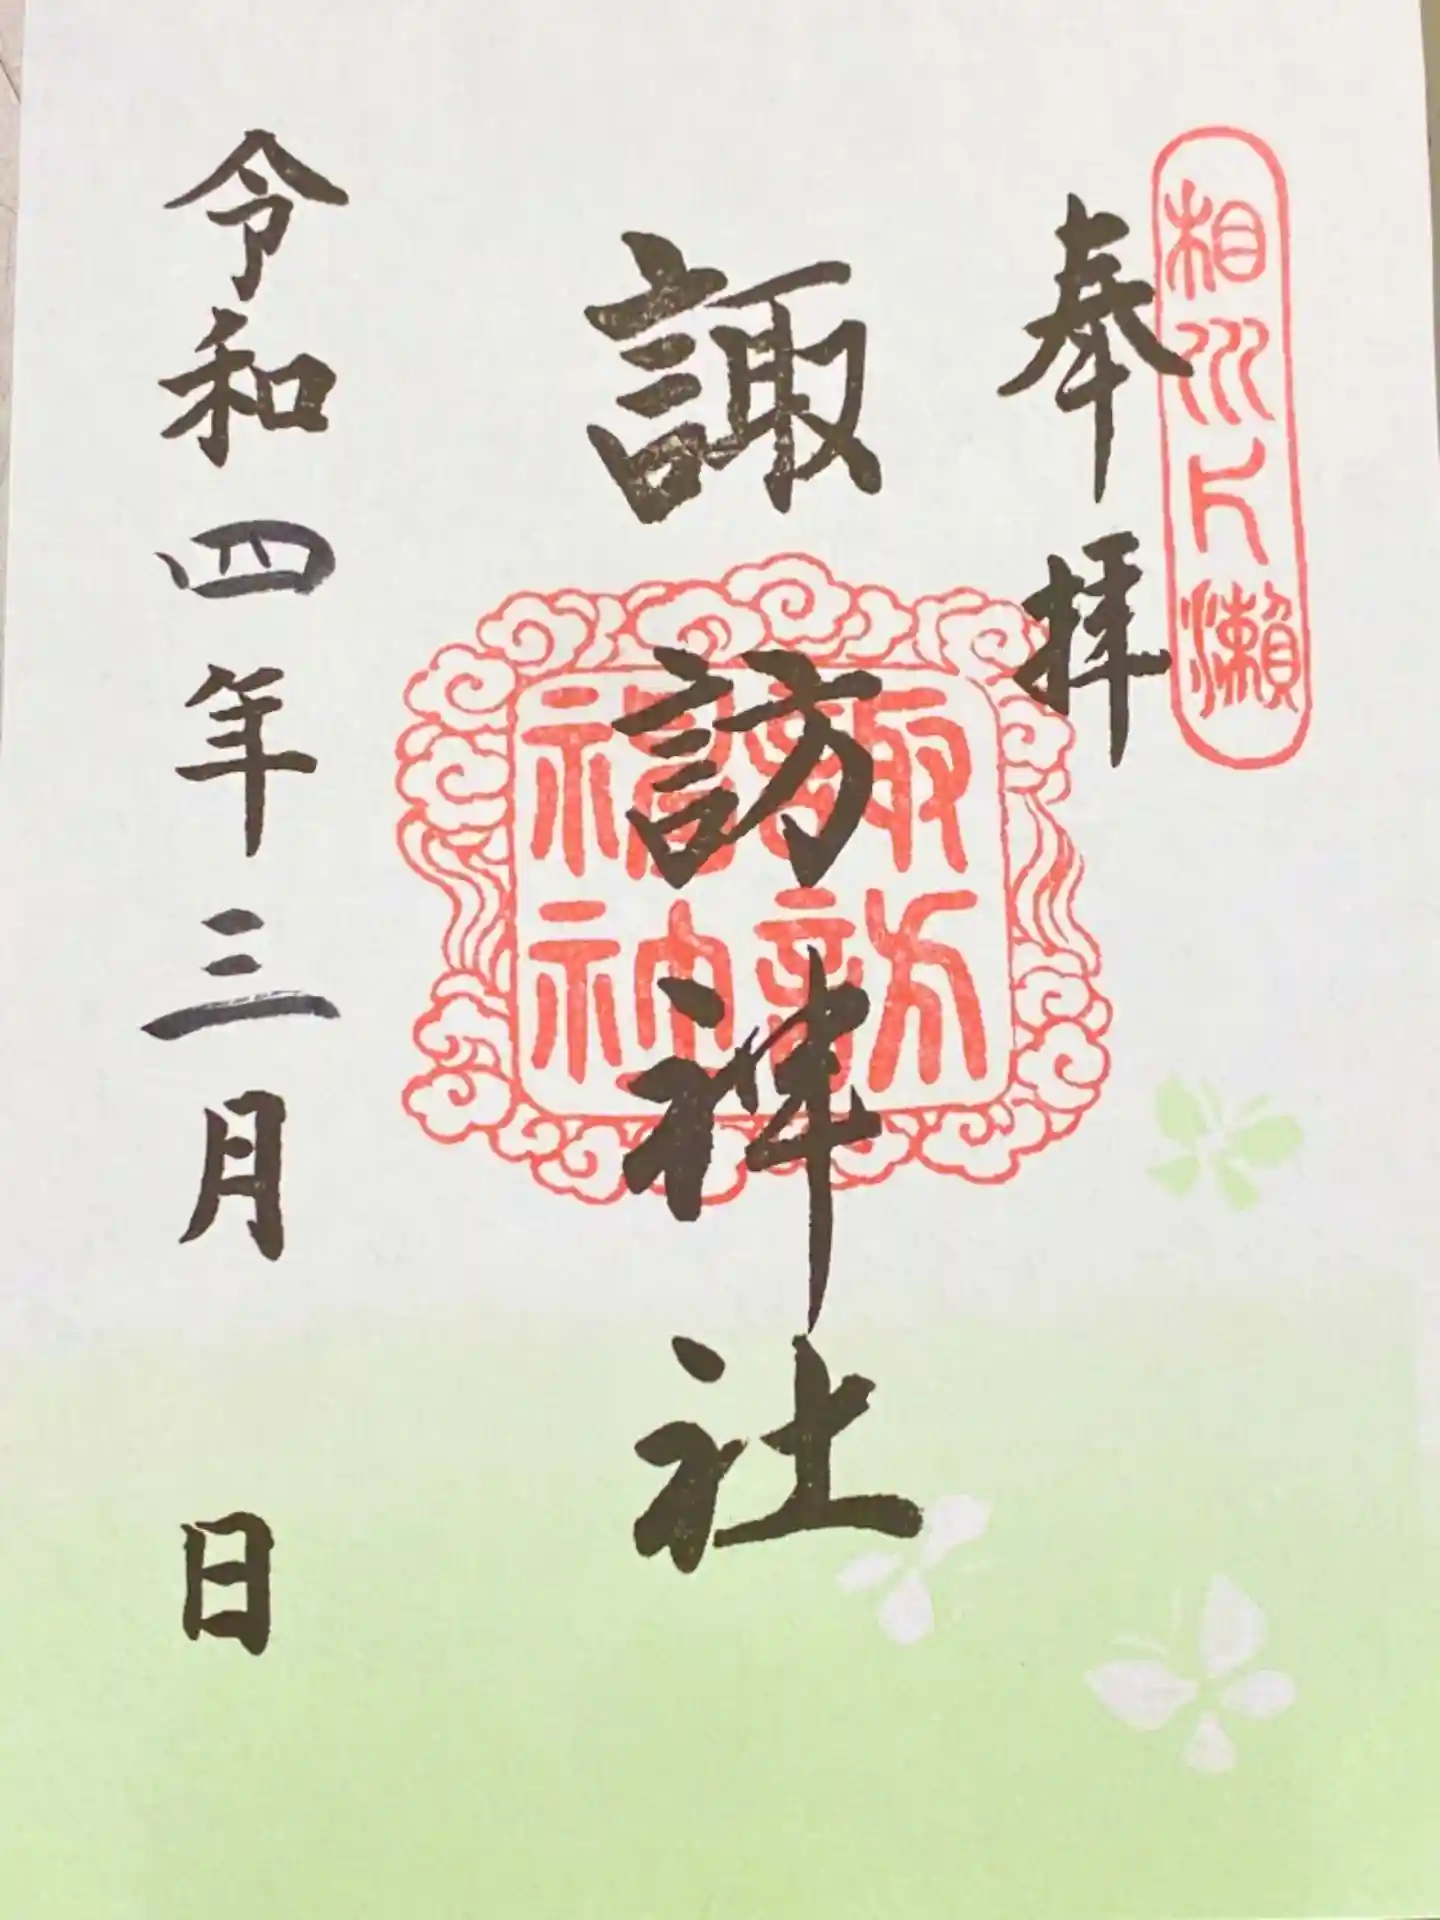 相州片瀬
奉拝
諏訪神社
諏訪
神
令和四年三月　日